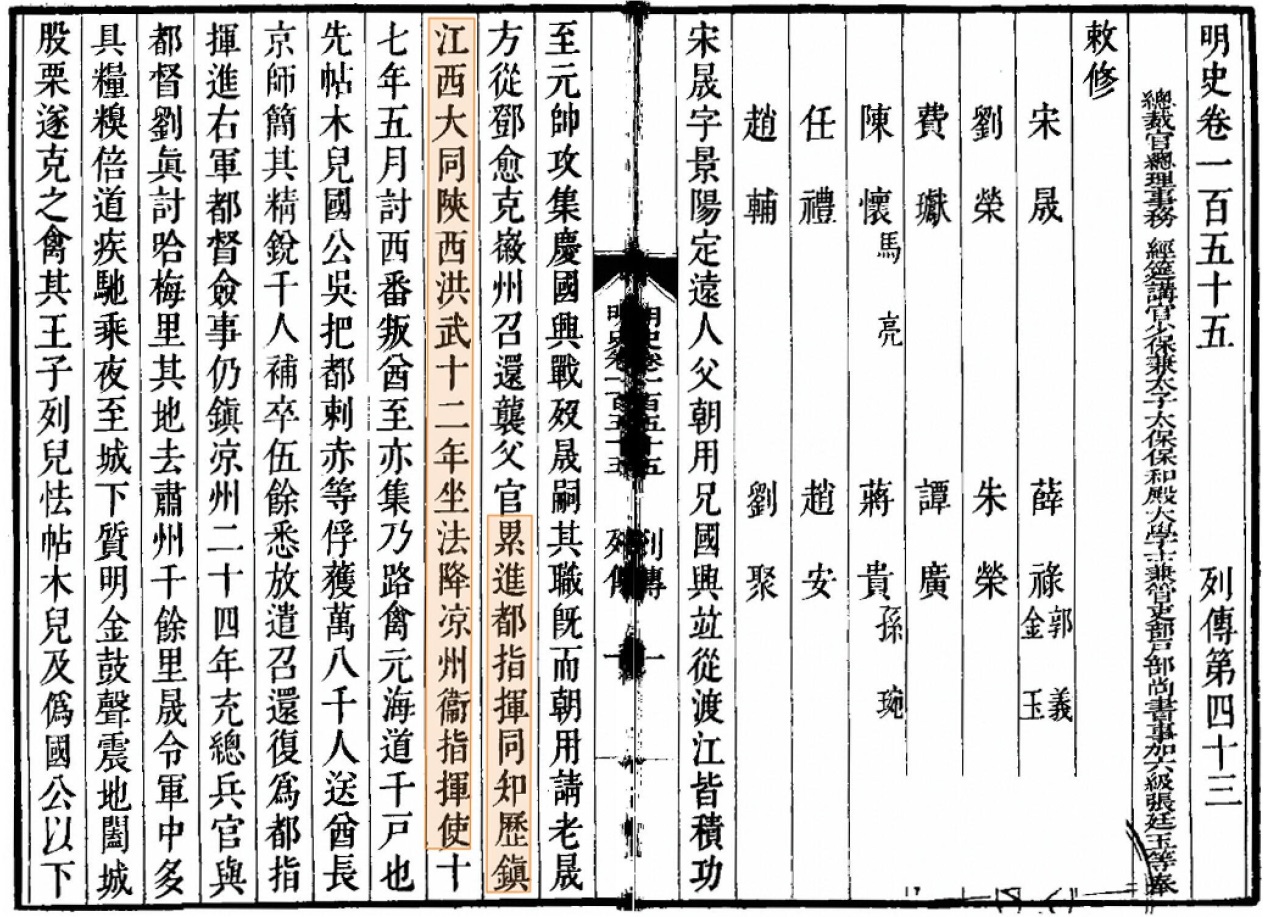 明史卷一百五十五　列傳第四十三
總裁官總理事務　經筵講官少保兼太子太保保和殿大學士兼管吏部戶部尚書事加六級張廷玉等奉
敕修
宋晟　薛祿郭義金玉
劉榮　朱榮
費瓛　譚廣
陳懷馬亮　蔣貴孫琬
任禮　趙安
趙輔　劉聚
宋晟字景陽定遠人父朝用兄國興竝從渡江皆積功
明史卷一百五十五　列傳　一
至元帥攻集慶國興戰歿晟嗣其職旣而朝用請老晟
方從鄧愈克徽州召還襲父官累進都指揮同知歷鎭
江西大同陝西洪武十二年坐法降凉州衞指揮使十
七年五月討西番叛酋至亦集乃路禽元海道千戸也
先帖木兒國公吳把都剌赤等俘獲萬八千人送酋長
京師簡其精銳千人補卒伍餘悉放遣召還復爲都指
揮進右軍都督僉事仍鎭凉州二十四年充總兵官與
都督劉眞討哈梅里其地去肅州千餘里晟令軍中多
具糧糗倍道疾馳乘夜至城下質明金鼓聲震地闔城
股栗遂克之禽其王子列兒怯帖木兒及僞國公以下